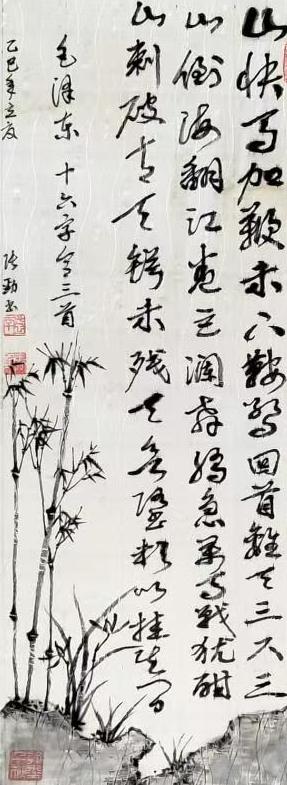 山快马加鞭未下鞍惊回首离天三尺三
山倒海翻江卷巨澜奔腾急万马战犹酣
山刺破青天锷未残天欲堕赖以拄其间
毛泽东 十六字令三首
乙巳年立夏
张勁书